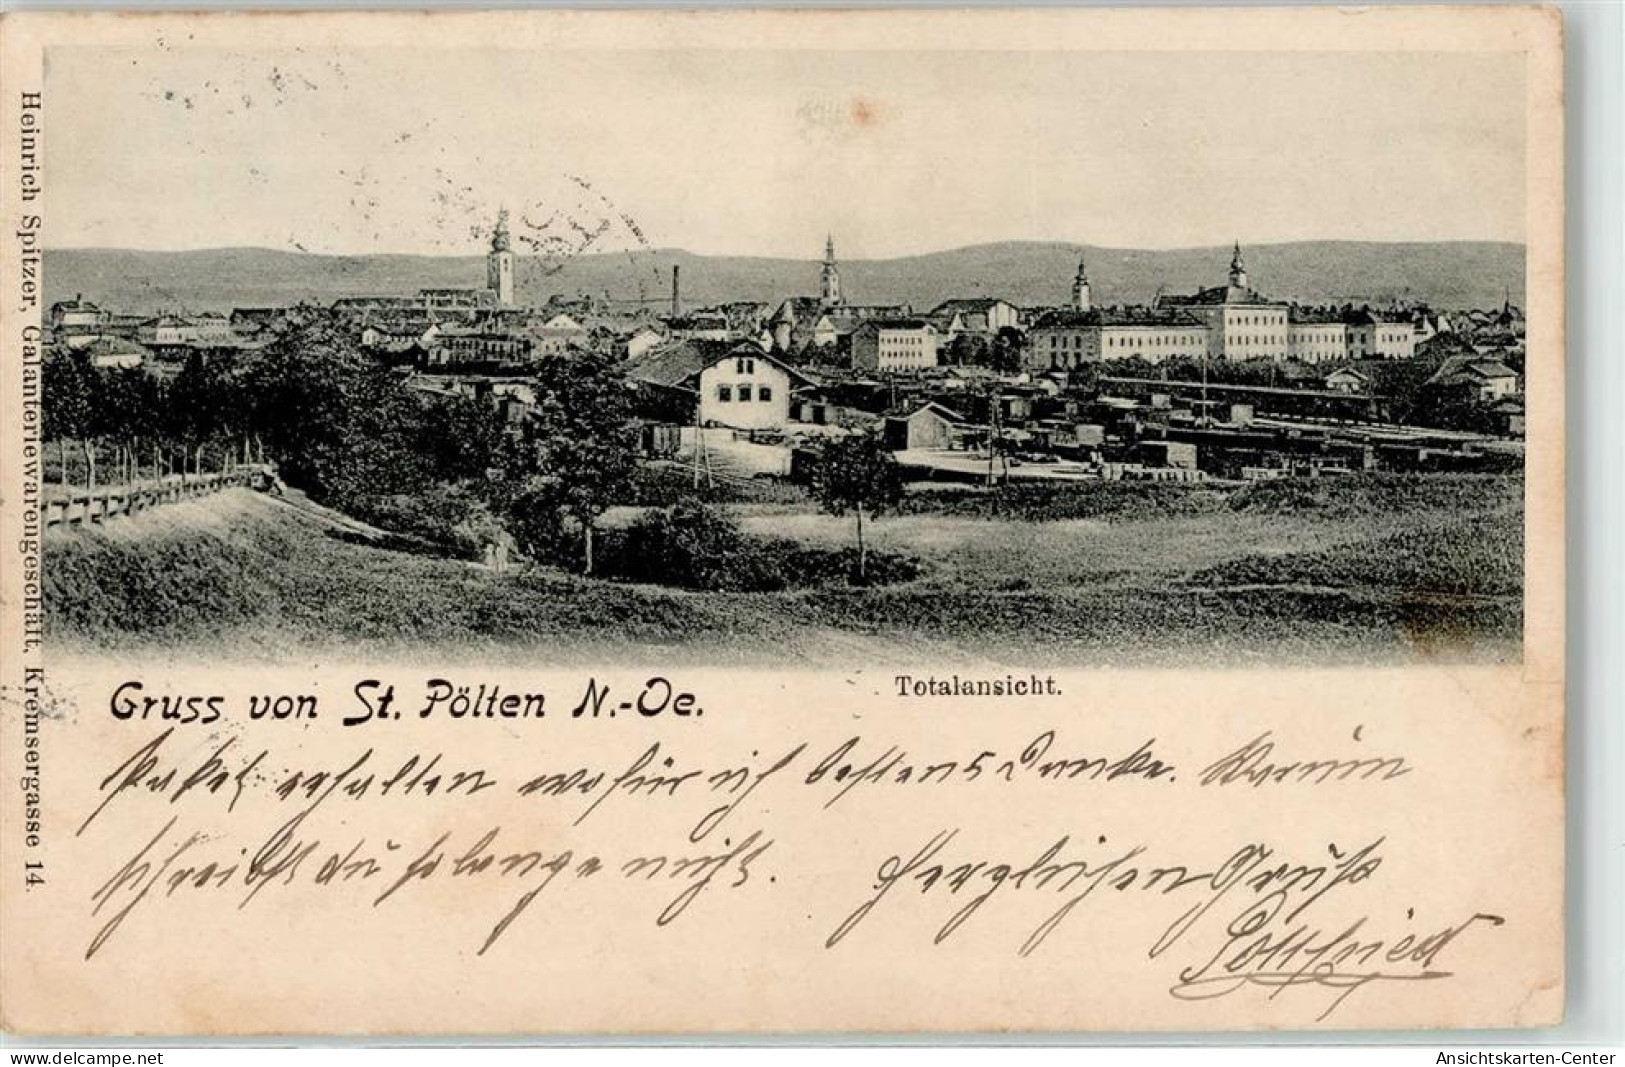 Heinrich Spitzer, Galanteriewarengeschäft, Kremsergasse 14.
Gruss von St. Pölten N.-Oe.
Totalansicht.
Paket erhalten wofür ich bestens Danke. Warum
schreibst du so lange nicht. Herzlichen Gruß
Gottfried
www.delcampe.net
Ansichtskarten-Center